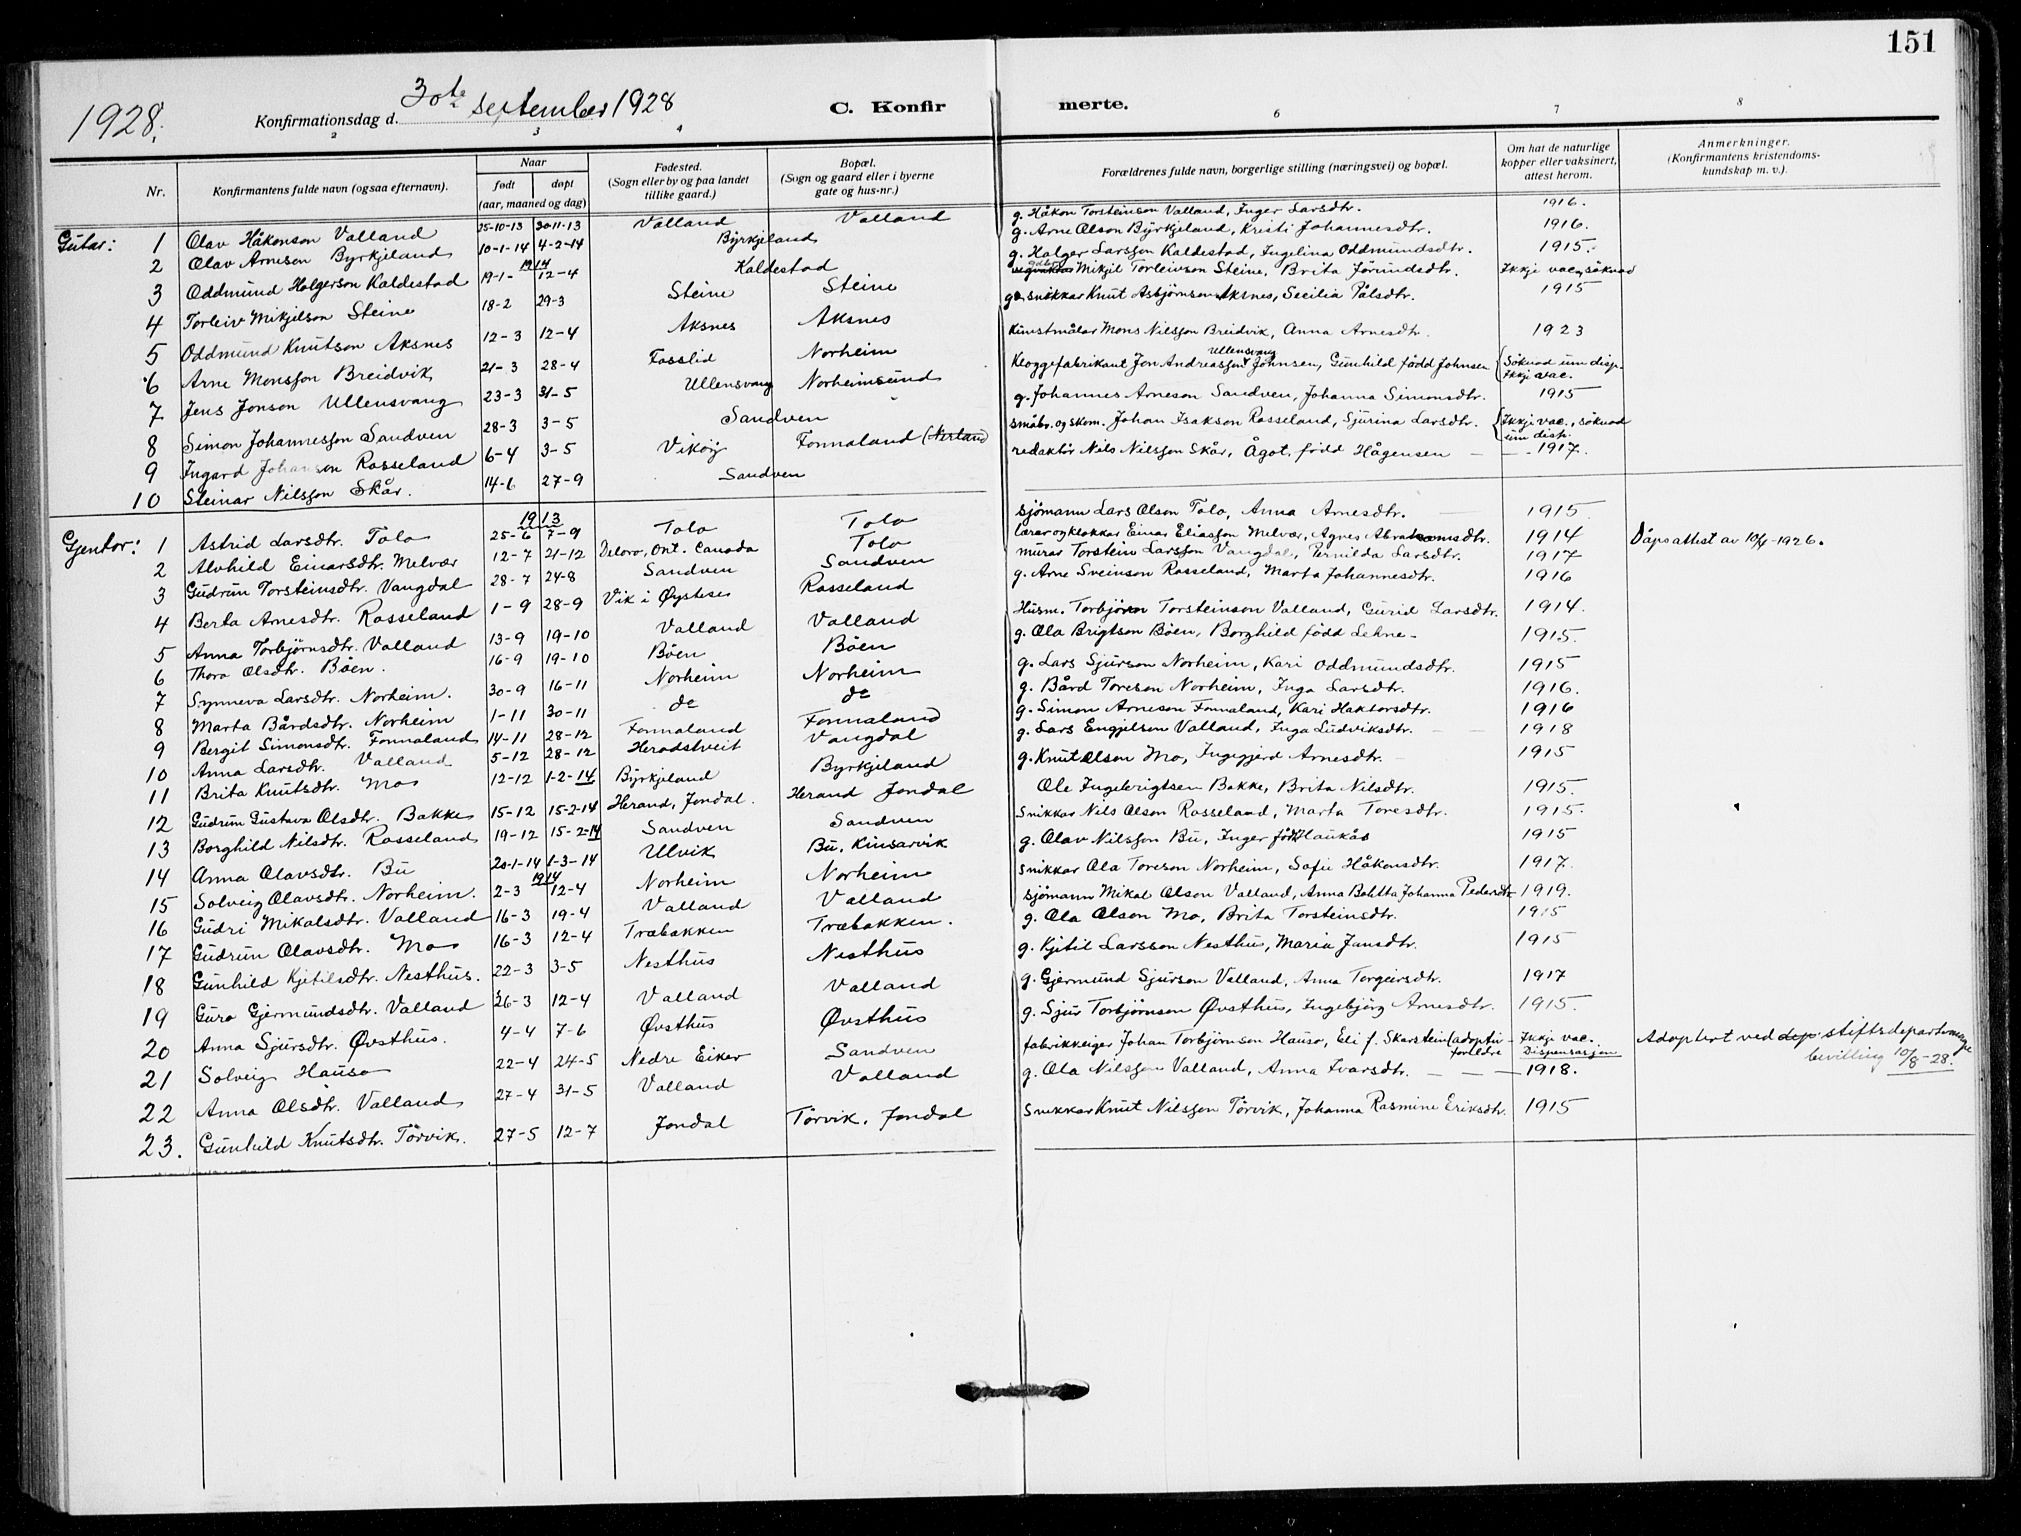 151
1928.
Konfirmationsdag d. 30te september 1928
C. Konfirmerte.
2 3 4 6 7 8
Nr. Konfirmantens fulde navn (ogsaa efternavn). Naar født døpt (aar, maaned og dag) Fødested. (Sogn eller by og paa landet tillike gaard.) Bopæl. (Sogn og gaard eller i byerne gate og hus-nr.) Forældrenes fulde navn, borgerlige stilling (næringsvei) og bopæl. Om hat de naturlige kopper eller vaksinert, attest herom. Anmerkninger. (Konfirmantens kristendoms-kundskap m. v.).
Gutar: 1 Olav Håkonson Valland 25-10-13 30-11-13 Valland Valland g. Håkon Torsteinson Valland, Inger Larsdtr. 1916.
2 Olav Arneson Byrkjeland 10-1-14 4-2-14 Byrkjeland g. Arne Olson Byrkjeland, Kristi Johannesdtr. 1916.
1914
3 Oddmund Holgerson Kaldestad 19-1- 12-4 Kaldestad g. Holger Larsson Kaldestad, Ingelina Oddmundsdtr. 1915.
4 Torleiv Mikjelson Steine 18-2 29-3 Steine Steine Mikjil Torleivson Steine, Brita Jörundsdtr. Ikkje vac, söknad
5 Oddmund Knutson Aksnes 12-3 12-4 Aksnes Aksnes snikkar Knut Asbjörnson Aksnes, Secilia Pålsdtr. 1915
6 Arne Monsson Breidvik 21-3 28-4 Fosslid Norheim Kunstmålar Mons Nilsson Breidvik, Anna Arnesdtr. 1923
7 Jens Jonson Ullensvang 23-3 31-5 Ullensvang Norheimsund Kloggefabrikant Jon Andreasson Ullensvang Johnsen, Gunhild född Johnsen Söknad um disp. Ikkje vac.
8 Simon Johannesson Sandven 28-3 3-5 Sandven g. Johannes Arneson Sandven, Johanna Simonsdtr. 1915
9 Ingard Johanson Rosseland 6-4 3-5 Vikøy Fonnaland (Nerland småbr. og skom. Johan Isakson Rosseland, Sjurina Larsdtr. Ikkje vac., söknad um disp.
10 Steinar Nilsson Skår. 14-6 27-9 Sandven redaktör Nils Nilsson Skår, Ågot född Hågensen - - 1917.
1913
Gjentor: 1 Astrid Larsdtr. Tolo 25-6 7-9 Tolo Tolo sjömann Lars Olson Tolo, Anna Arnesdtr. 1915
2 Alvhild Einarsdtr. Melvær 12-7 21-12 Deloro, Ont. Canada Tolo lærar og klokkar Einar Eliasson Melvær, Agnes Abrahamsdtr. 1914 Dåpsattest av 10/4-1926.
3 Gudrun Torsteinsdtr. Vangdal 28-7 24-8 Sandven Sandven murar Torstein Larsson Vangdal, Pernilda Larsdtr. 1917
4 Berta Arnesdtr. Rosseland 1-9 28-9 Vik i Øystese Rosseland g. Arne Sveinson Rosseland, Marta Johannesdtr. 1916
5 Anna Torbjörnsdtr. Valland 13-9 19-10 Valland Valland Husm. Torbjörn Torsteinson Valland, Gurid Larsdtr. 1914.
6 Thora Olsdtr. Böen. 16-9 19-10 Böen Böen g. Ola Brigtson Böen, Borghild född Lekne- 1915.
7 Synneva Larsdtr. Norheim. 30-9 16-11 Norheim Norheim g. Lars Sjurson Norheim, Kari Oddmundsdtr. 1915
8 Marta Bårdsdtr. Norheim 1-11 30-11 do do g. Bård Toreson Norheim, Inga Larsdtr. 1916.
9 Bergit Simonsdtr. Fonnaland 14-11 28-12 Fonnaland Fonnaland g. Simon Arneson Fonnaland, Kari Haktorsdtr. 1916
10 Anna Larsdtr. Valland 5-12 28-12 Herodstveit Vangdal g. Lars Engjelson Valland, Inga Ludviksdtr. - - 1918
11 Brita Knutsdtr. Mo 12-12 1-2-14 Byrkjeland Byrkjeland g. Knut Olson Mo, Ingegjerd Arnesdtr. 1915
12 Gudrun Gustava Olsdtr. Bakke 15-12 15-2-14 Herand, Jondal. Herand Jondal Ole Ingebrigtsen Bakke, Brita Nilsdtr. 1915.
13 Borghild Nilsdtr. Rosseland 19-12 15-2-14 Sandven Sandven snikkar Nils Olson Rosseland, Marta Toresdtr. 1915.
14 Anna Olavsdtr. Bu 20-1-14 1-3-14 Ulvik Bu, Kinsarvik g. Olav Nilsson Bu, Inger född Haukås 1915
1914
15 Solveig Olavsdtr. Norheim. 2-3 12-4 Norheim Norheim snikkar Ola Toreson Norheim, Sofie Håkonsdtr. 1917.
16 Gudri Mikalsdtr. Valland 16-3 19-4 Valland Valland sjömann Mikal Olson Valland, Anna Boletta Johanna Pedersdtr 1919.
17 Gudrun Olavsdtr. Mo 16-3 12-4 Træbakken Træbakken. g. Ola Olson Mo, Brita Torsteinsdtr. 1915
18 Gunhild Kjetilsdtr. Nesthus. 22-3 3-5 Nesthus Nesthus g. Kjetil Larsson Nesthus, Maria Jonsdtr. 1915
19 Guro Gjermundsdtr. Valland 26-3 12-4 Valland Valland g. Gjermund Sjurson Valland, Anna Torgeirsdtr. 1917
20 Anna Sjursdtr. Øvsthus. 4-4 7-6 Øvsthus Øvsthus g. Sjur Torbjörnson Øvsthus, Ingebjörg Arnesdtr. 1915.
21 Solveig Hauso 22-4 24-5 Nedre Eiker Sandven fabrikkeigar Johan Torbjörnson Hauso, Eli f. Skarstein (adoptiv-forældre Ikkje vac. Dispensasjon Adoptert ved dep stiftsdepartements bevilling 10/8-28.
22 Anna Olsdtr. Valland 27-4 31-5 Valland Valland g. Ola Nilsson Valland, Anna Ivarsdtr. - - 1918.
23. Gunhild Knutsdtr. Törvik. 27-5 12-7 Jondal Törvik, Jondal snikkar Knut Nilsson Törvik, Johanna Rasmine Eriksdtr. 1915